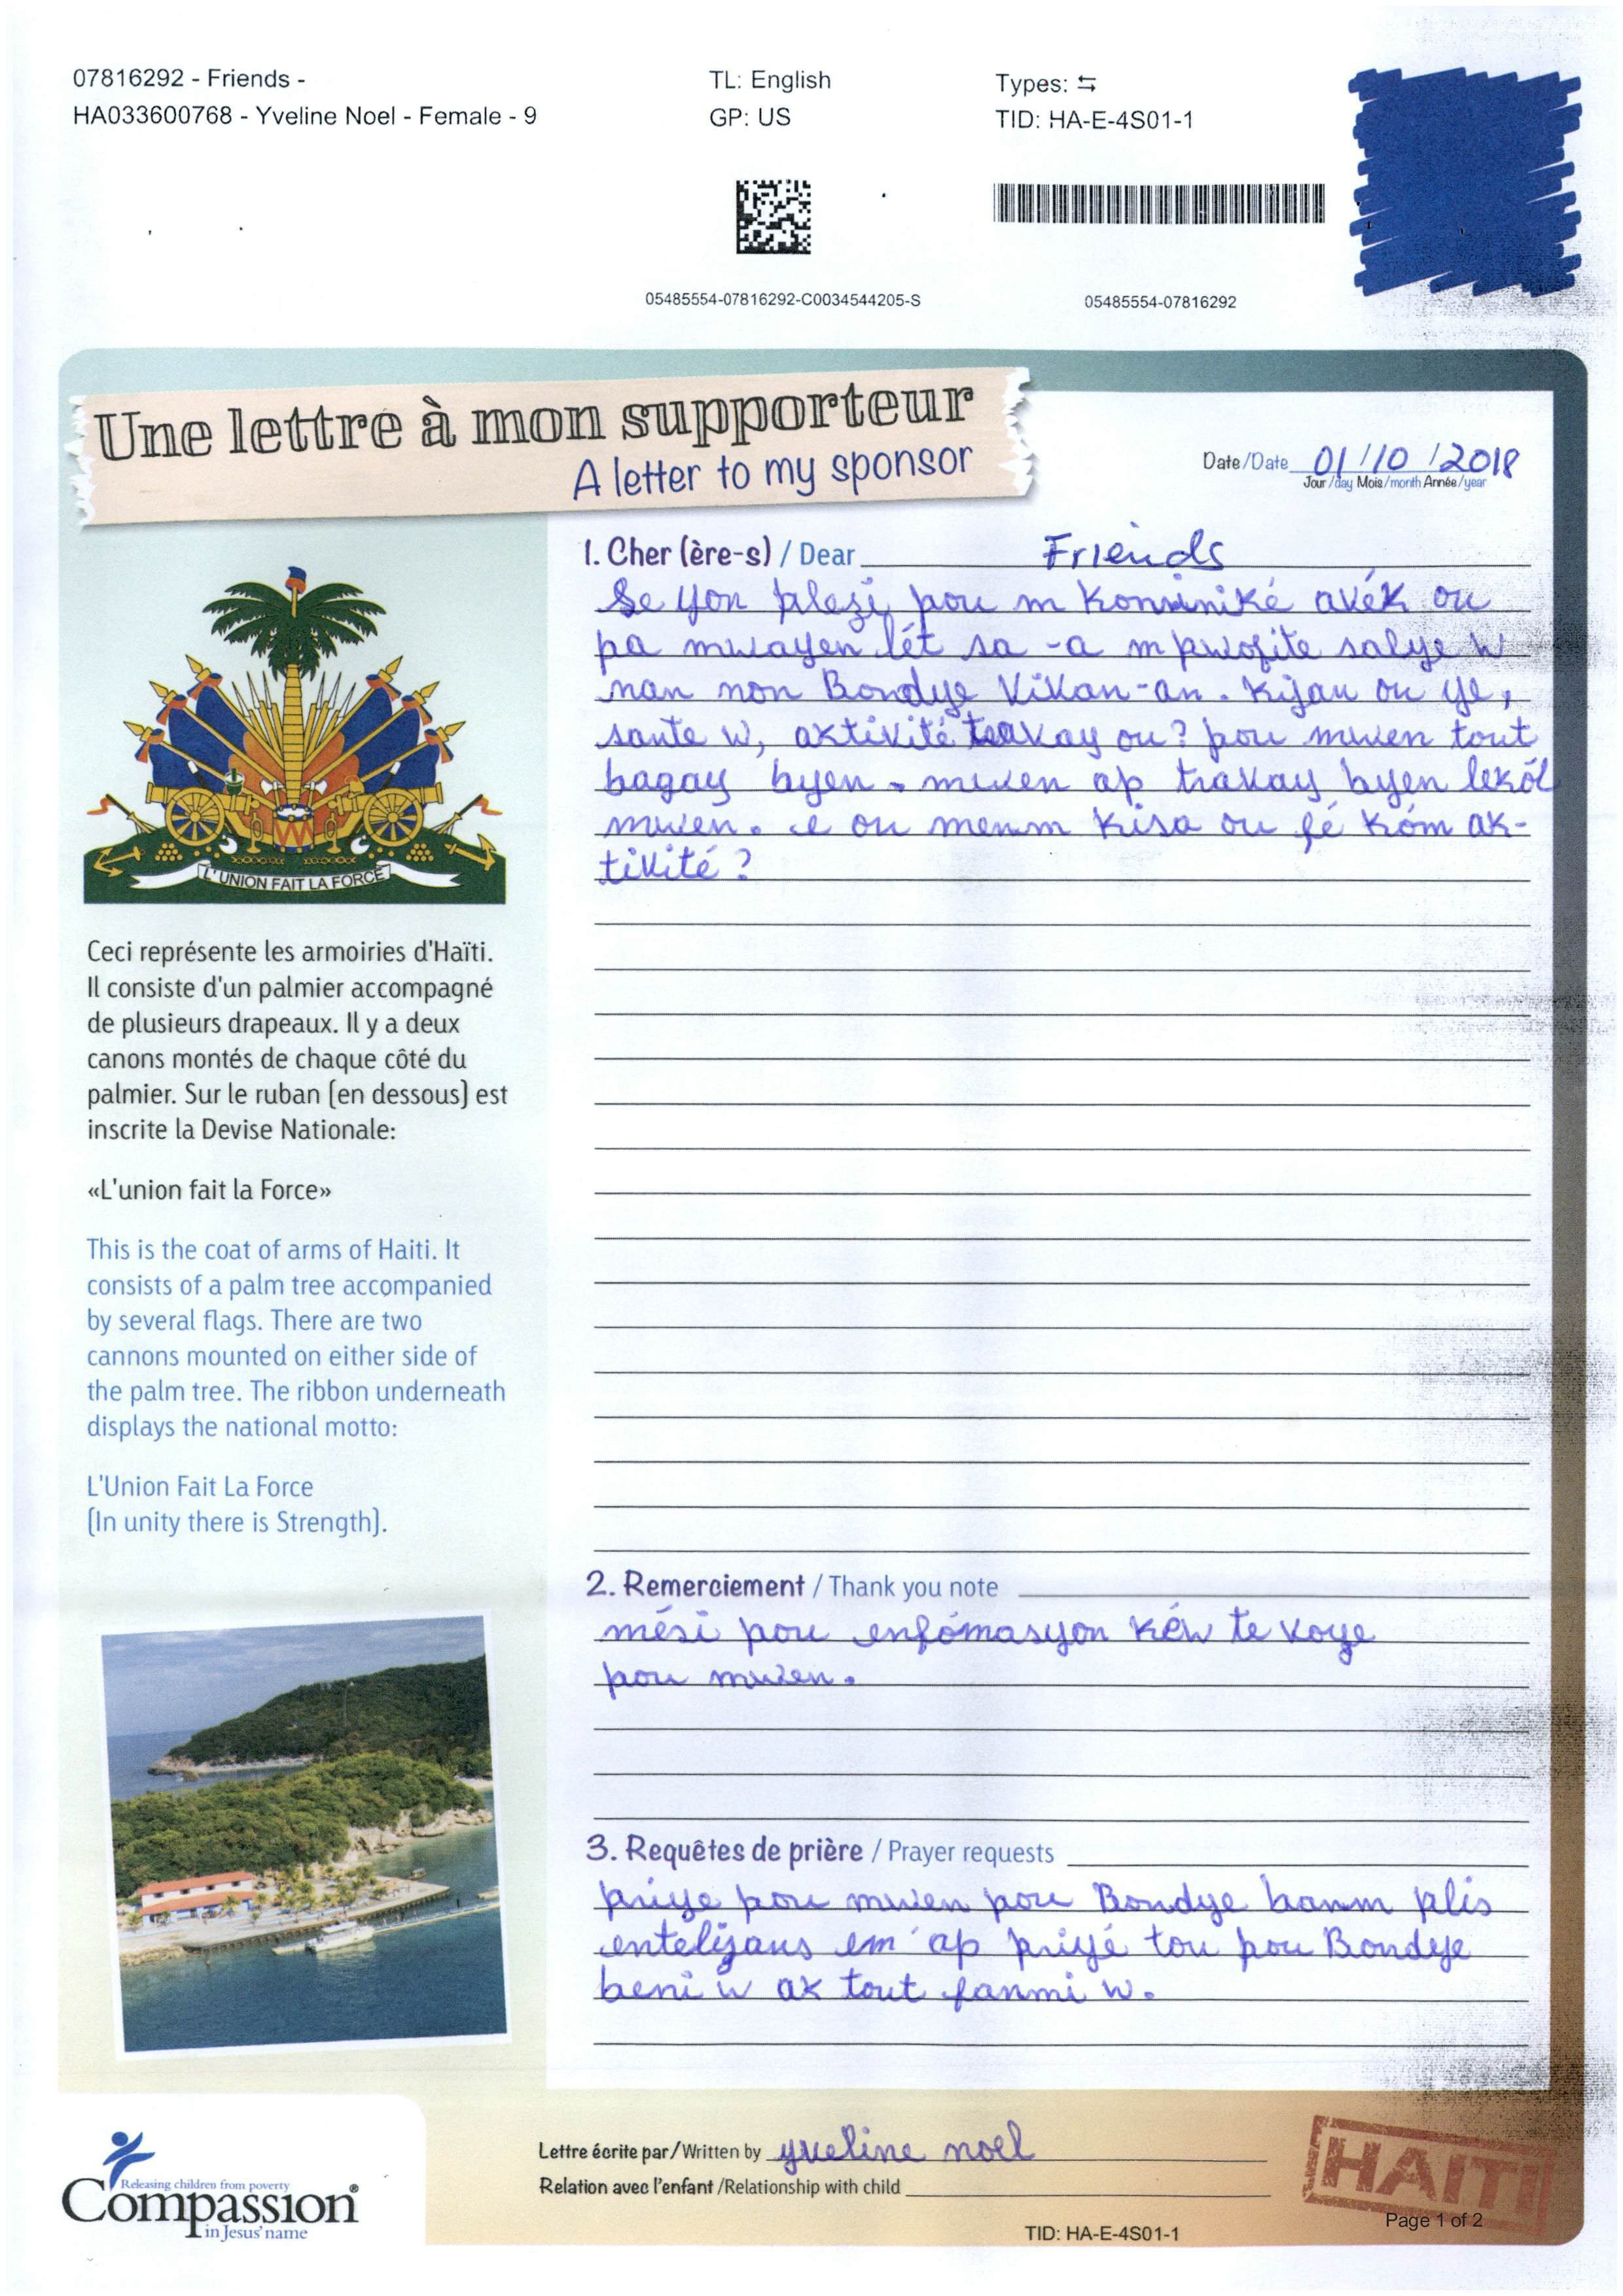 07816292 - Friends -
HA033600768 - Yveline Noel - Female - 9
TL: English
GP: US
Types: ⇆
TID: HA-E-4S01-1
05485554-07816292-C0034544205-S
05485554-07816292
Une lettre à mon supporteur
A letter to my sponsor
Date/Date 01/10/2018
Jour/day Mois/month Année/year
1. Cher (ère-s) / Dear Friends
Se yon plezi pou m kominiké avék ou
pa mwayen lét sa -a m pwofite salye w
nan non Bondye Vivan-an. Kijan ou ye,
sante w, aktivité travay ou? pou mwen tout
bagay byen. mwen ap travay byen lekól
mwen. e ou menm kisa ou fé kóm ak-
tivité?
L'UNION FAIT LA FORCE
Ceci représente les armoiries d'Haïti.
Il consiste d'un palmier accompagné
de plusieurs drapeaux. Il y a deux
canons montés de chaque côté du
palmier. Sur le ruban (en dessous) est
inscrite la Devise Nationale:
«L'union fait la Force»
This is the coat of arms of Haiti. It
consists of a palm tree accompanied
by several flags. There are two
cannons mounted on either side of
the palm tree. The ribbon underneath
displays the national motto:
L'Union Fait La Force
(In unity there is Strength).
2. Remerciement / Thank you note
mési pou enfómasyon kéw te voye
pou mwen.
3. Requêtes de prière / Prayer requests
priye pou mwen pou Bondye banm plis
entelijans em ap priyé tou pou Bondye
beni w ak tout fanmi w.
Releasing children from poverty
Compassion®
in Jesus' name
Lettre écrite par/Written by yveline noel
Relation avec l'enfant/Relationship with child
HAITI
TID: HA-E-4S01-1
Page 1 of 2